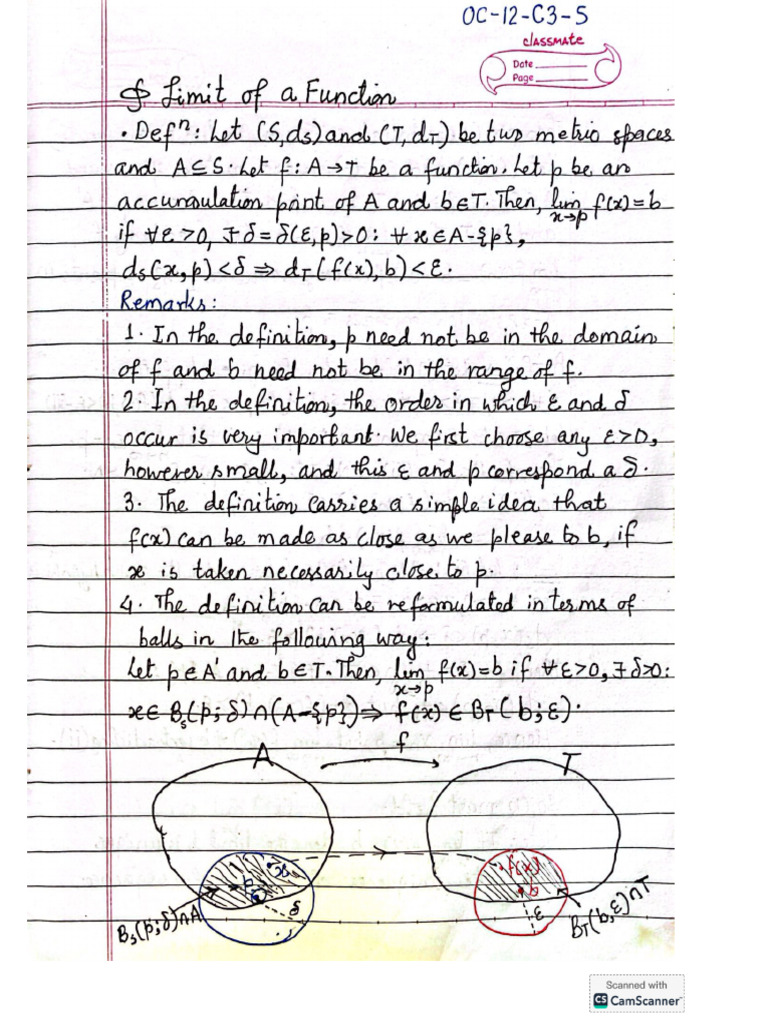 OC-12-C3-5
classmate
Date
Page
§ Limit of a Function
• Defⁿ: Let (S,dₛ) and (T,d_T) be two metric spaces
and A⊆S. Let f: A→T be a function. Let p be an
accumulation point of A and b∈T. Then, lim f(x)=b
x→p
if ∀ε>0, ∃ δ=δ(ε,p)>0: ∀ x∈A-{p},
dₛ(x,p)<δ ⇒ d_T(f(x),b)<ε.
Remarks:
1. In the definition, p need not be in the domain
of f and b need not be in the range of f.
2. In the definition, the order in which ε and δ
occur is very important. We first choose any ε>0,
however small, and this ε and p correspond a δ.
3. The definition carries a simple idea that
f(x) can be made as close as we please to b, if
x is taken necessarily close to p.
4. The definition can be reformulated in terms of
balls in the following way:
Let p∈A' and b∈T. Then, lim f(x)=b if ∀ε>0, ∃ δ>0:
x→p
x∈ Bₛ(p;δ)∩(A-{p}) ⇒ f(x)∈B_T(b;ε).
A
f
T
x
f(x)
p
b
δ
ε
Bₛ(p;δ)∩A
B_T(b,ε)∩T
Scanned with
CS CamScanner